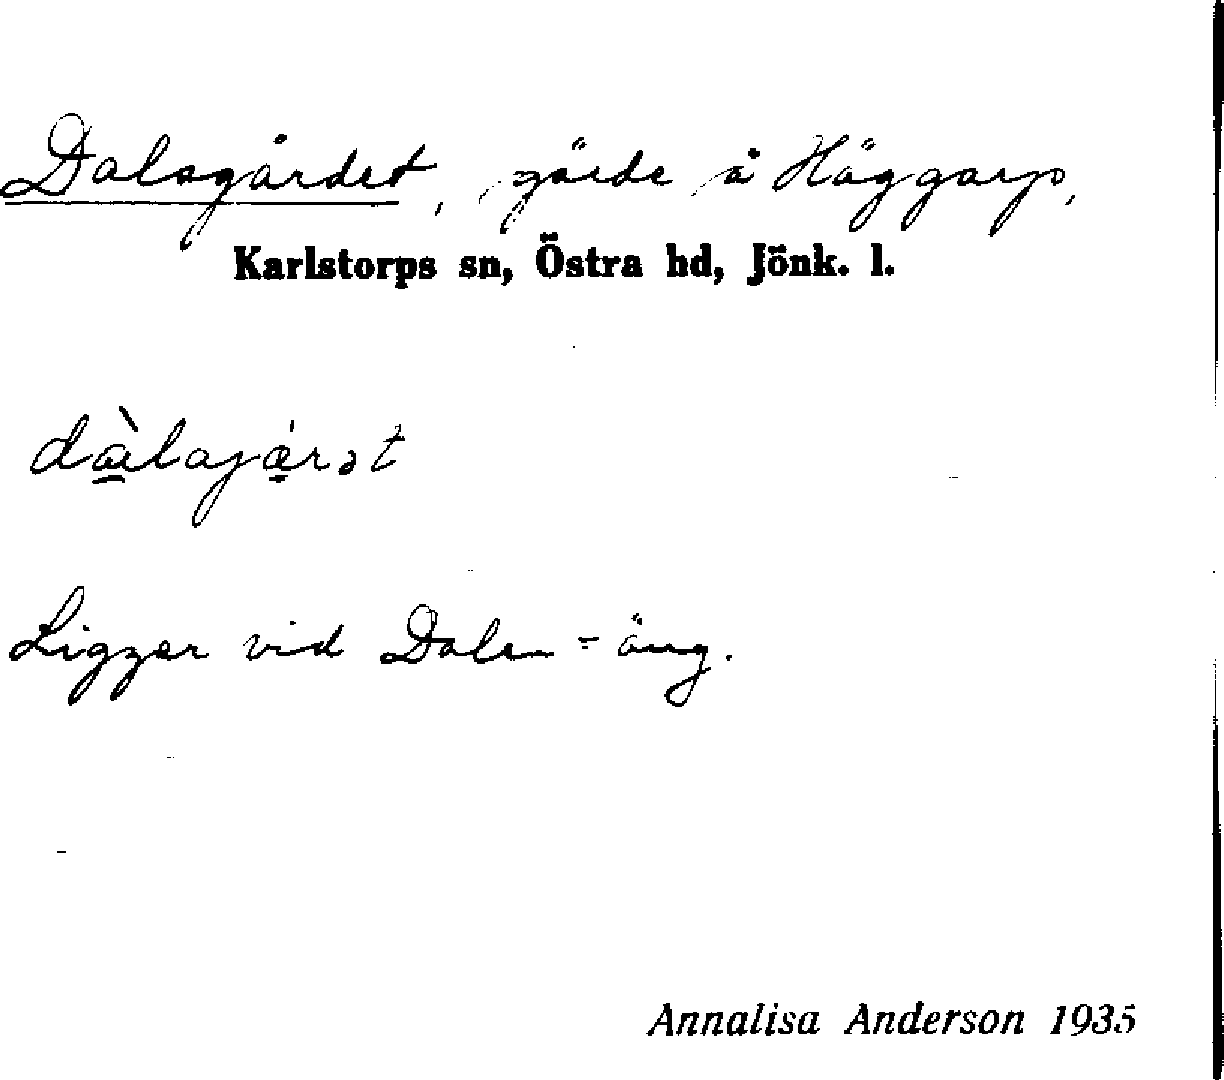 Dalagärdet, gärde å Häggarp,
Karlstorps sn, Östra hd, Jönk. l.
dàlajæ̀rət
Ligger vid Dalen = äng.
Annalisa Anderson 1935